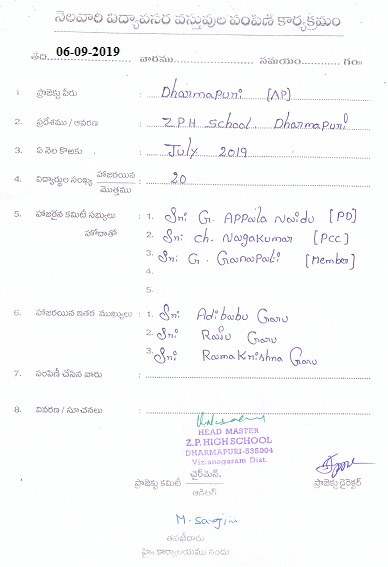 నెలవారి విద్యావసర వస్తువుల పంపిణీ కార్యక్రమం
తేది 06-09-2019 వారము సమయం గం॥
1. ప్రాజెక్టు పేరు : Dharmapuri [AP]
2. ప్రదేశము / ఆవరణ : Z.P.H School Dharmapuri
3. ఏ నెల కొఱకు : July 2019
4. విద్యార్థుల సంఖ్య హాజరయిన : 20
మొత్తము
5. హాజరైన కమిటీ సభ్యులు : 1. Sri G. Appala Naidu [PD]
హోదాతో 2. Sri Ch. Nagakumar [PCC]
3. Sri G. Ganapati [Member]
4.
5.
6. హాజరయిన ఇతర ముఖ్యులు : 1. Sri Adibabu Garu
2. Sri Raju Garu
3. Sri RamaKrishna Garu
7. పంపిణీ చేసిన వారు :
8. వివరణ / సూచనలు :
HEAD MASTER
Z.P. HIGH SCHOOL
DHARMAPURI-535004
Vizianagaram Dist.
ప్రాజెక్టు కమిటీ చైర్‌మెన్. ప్రాజెక్టు డైరెక్టర్
ఆడిటర్
తనిఖీదారు
హై కార్యాలయము నందు